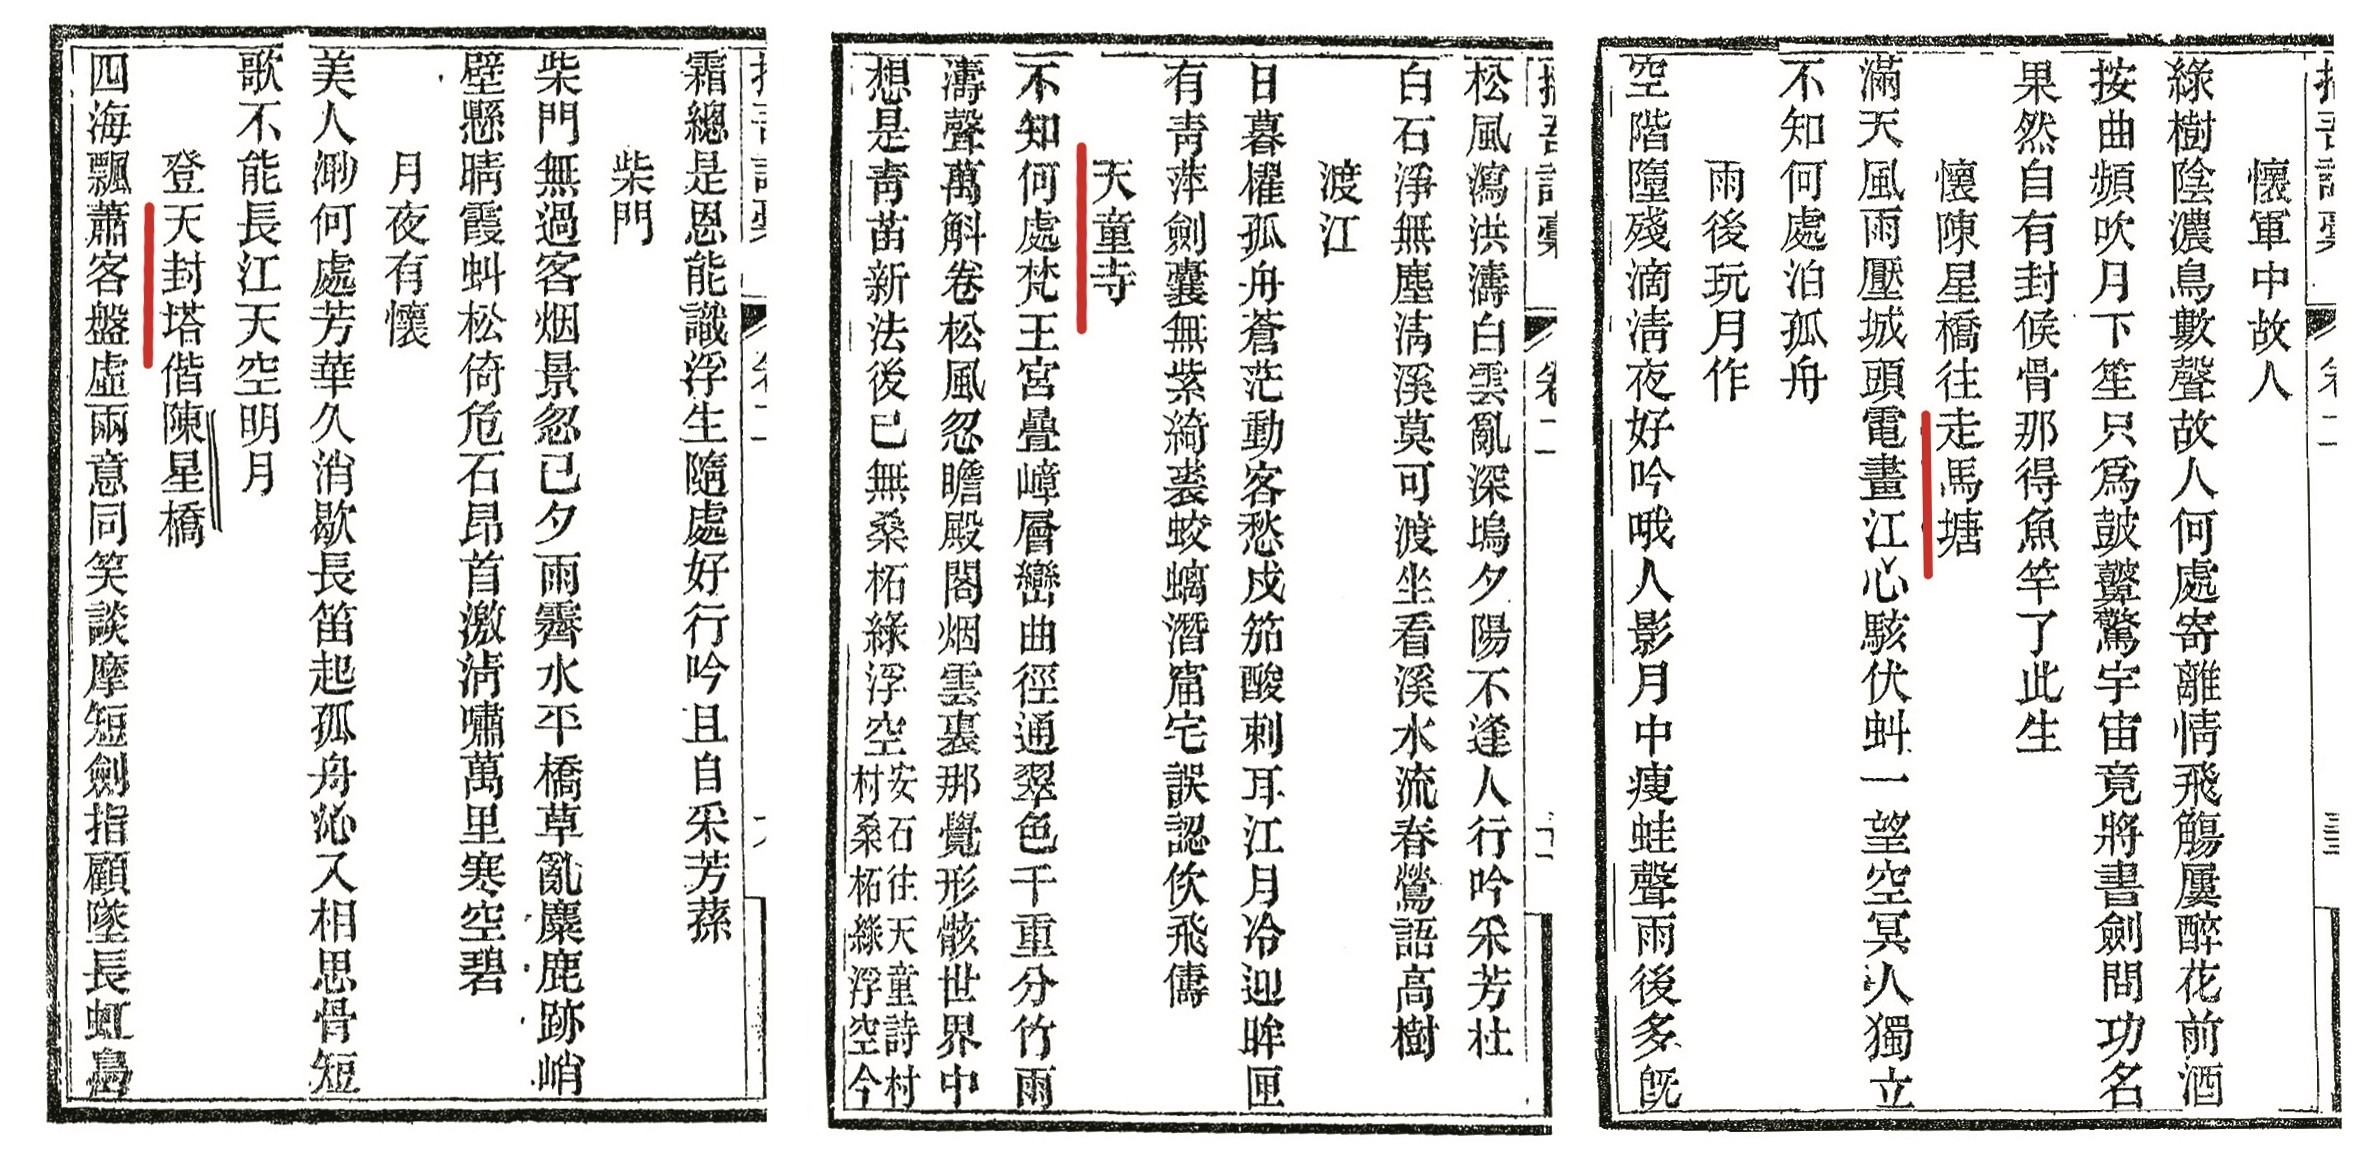 懷軍中故人
綠樹陰濃鳥數聲故人何處寄離情飛觴屢醉花前酒
按曲頻吹月下笙只爲鼓鼙驚宇宙竟將書劍問功名
果然自有封候骨那得魚竿了此生
懷陳星橋往走馬塘
滿天風雨壓城頭電畫江心駭伏虯一望空冥人獨立
不知何處泊孤舟
雨後玩月作
空階墮殘滴清夜好吟哦人影月中瘦蛙聲雨後多旣
松風瀉洪濤白雲亂深塢夕陽不逢人行吟采芳杜
白石淨無塵清溪莫可渡坐看溪水流春鶯語高樹
渡江
日暮櫂孤舟蒼茫動客愁戍笳酸刺耳江月冷迎眸匣
有青萍劍囊無紫綺裘蛟螭潛窟宅誤認佽飛儔
天童寺
不知何處梵王宮疊嶂層巒曲徑通翠色千重分竹雨
濤聲萬斛卷松風忽瞻殿閣烟雲裏那覺形骸世界中
想是青苗新法後已無桑柘綠浮空安石往天童詩村
村桑柘綠浮空今
霜總是恩能識浮生隨處好行吟且自采芳蓀
柴門
柴門無過客烟景忽已夕雨霽水平橋草亂麋鹿跡峭
壁懸晴霞虯松倚危石昂首激清嘯萬里寒空碧
月夜有懷
美人渺何處芳華久消歇長笛起孤舟沁入相思骨短
歌不能長江天空明月
登天封塔偕陳星橋
四海飄蕭客盤虛兩意同笑談摩短劍指顧墜長虹鳥